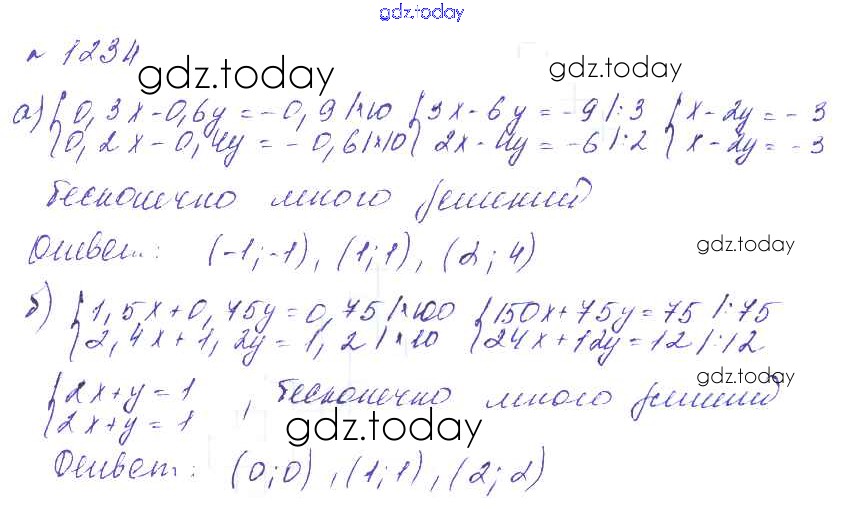 gdz.today
№ 1234
gdz.today
gdz.today
а) { 0,3x - 0,6y = -0,9 |×10 { 3x - 6y = -9 |:3 { x - 2y = -3
0,2x - 0,4y = -0,6 |×10 2x - 4y = -6 |:2 x - 2y = -3
бесконечно много решений
Ответ: (-1;-1), (1;1), (2;4)
gdz.today
б) { 1,5x + 0,75y = 0,75 |×100 { 150x + 75y = 75 |:75
2,4x + 1,2y = 1,2 |×10 24x + 12y = 12 |:12
gdz.today
{ 2x + y = 1
2x + y = 1 , бесконечно много решений
gdz.today
Ответ: (0;0), (1;1), (2;2)